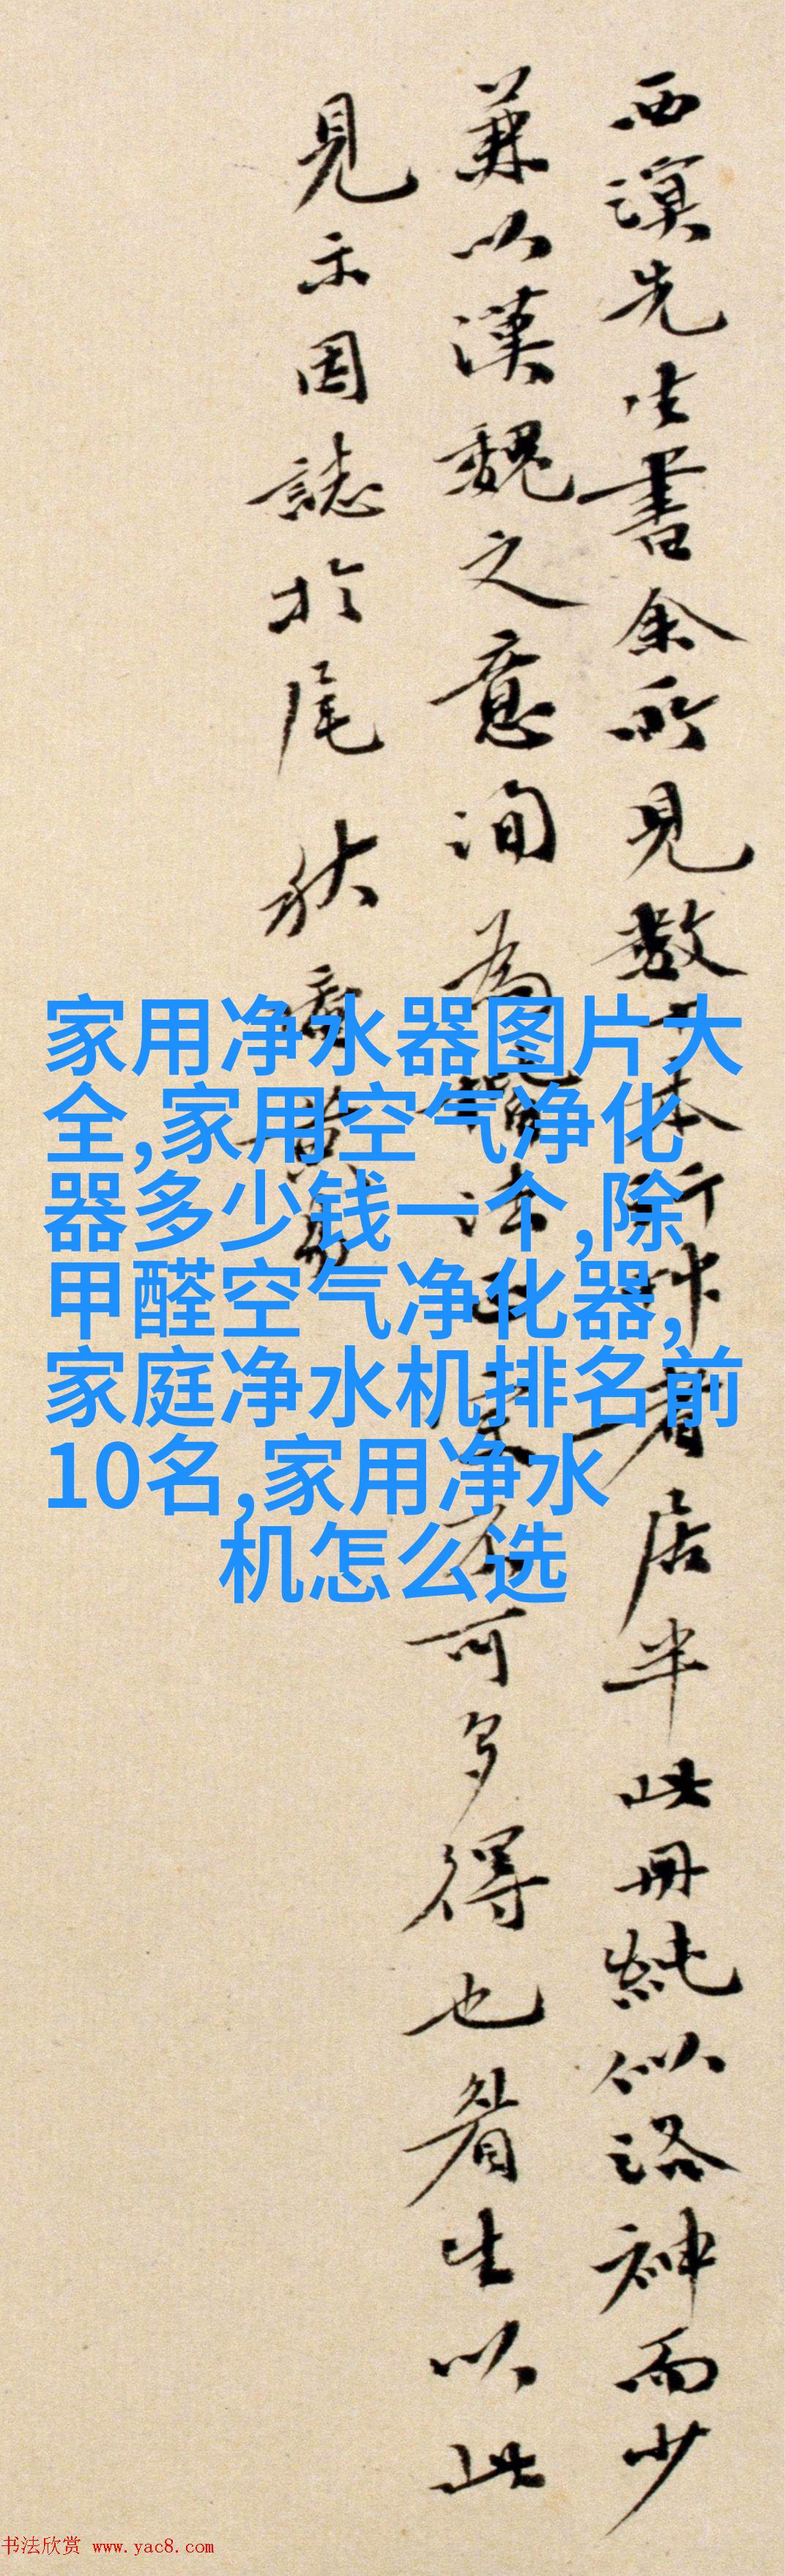 西溟先生書余所見數十本行押者居半此冊純似洛神而少
兼以漢魏之意洵為 法 家不可多得也眷生以此
見示因誌於尾 秋盦黃易
家用净水器图片大
全,家用空气净化
器多少钱一个,除
甲醛空气净化器,
家庭净水机排名前
10名,家用净水
机怎么选
书法欣赏 www.yac8.com